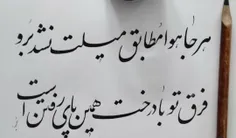 هر جا هوا مطابق میلت نشد برو
فرق تو با درخت همین پای رفتن است